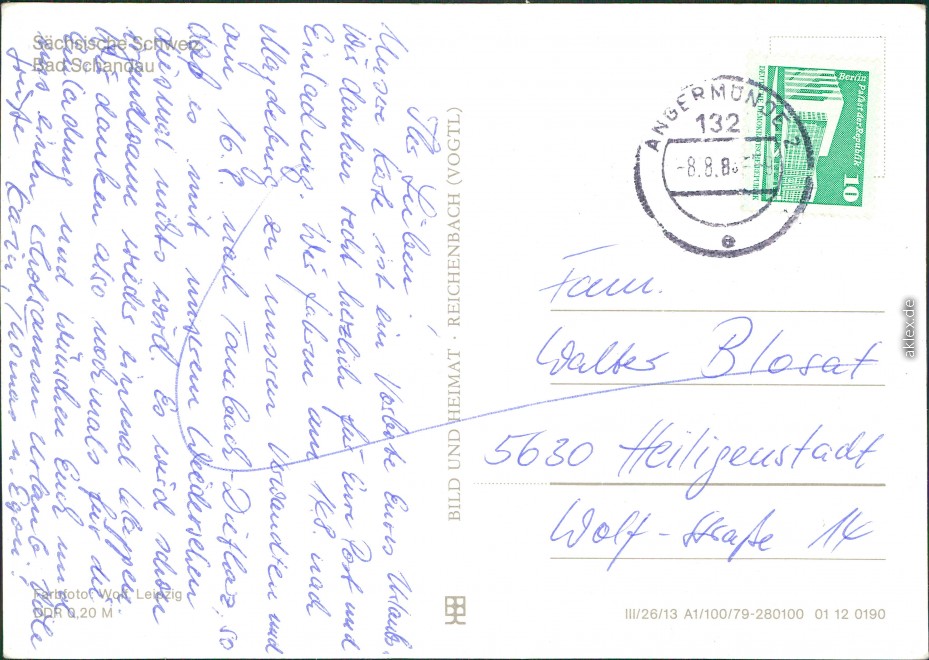 Sächsische Schweiz
Bad Schandau
Ihr Lieben!
Unsere Küste ist ein Vorbote Eures Urlaubs.
Wir danken recht herzlich für Eure Post und
Einladung. Wir fahren am nach
Magdeburg zu unseren Verwandten und
am 16.8. nach Tambach-Dietharz, so
daß es mit unserem Wiedersehen
diesmal nichts wird. Es wird schon
irgendwann wieder einmal klappen.
Wir danken also nochmals für die
Einladung und wünschen Euch und
uns einen erholsamen Urlaub. Viele
Grüße Karin, u. Egon!
Farbfoto: Wolf, Leipzig
DDR 0,20 M
BILD UND HEIMAT · REICHENBACH (VOGTL)
ANGERMÜNDE 2
132
-8.8.8
e
Berlin
Palast der Republik
DEUTSCHE DEMOKRATISCHE REPUBLIK
10
Fam.
Walter Blosat
5630 Heiligenstadt
Wolf-Straße 14
III/26/13 A1/100/79-280100 01 12 0190
aklex.de